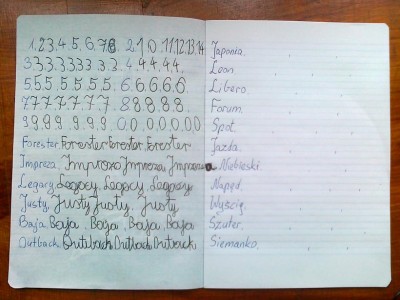 1,2,3,4,5,6,7,8 2,1,0,11,12,13,14
3333333 3.3.4.4.4.4.4.
5,5,5.5.5.5.5. 6.6.6.6.6.
77.7.7.7.7.7. 8 8.8.8.8.
9.9.9.9. 9.9.9. 0.0.0.0.0.0.0
Forester. Forester Forester. Forester
Impreza. Impreza Impreza Impreza
Legacy. Legacy. Legacy. Legacy
Justy. Justy Justy. Justy
Baja. Baja. Baja. Baja. Baja
Outback. Outback Outback Outback
Japonia.
Leon.
Libero.
Forum.
Spot.
Jazda.
Niebieski.
Napęd.
Wyścig.
Szuter.
Siemanko.